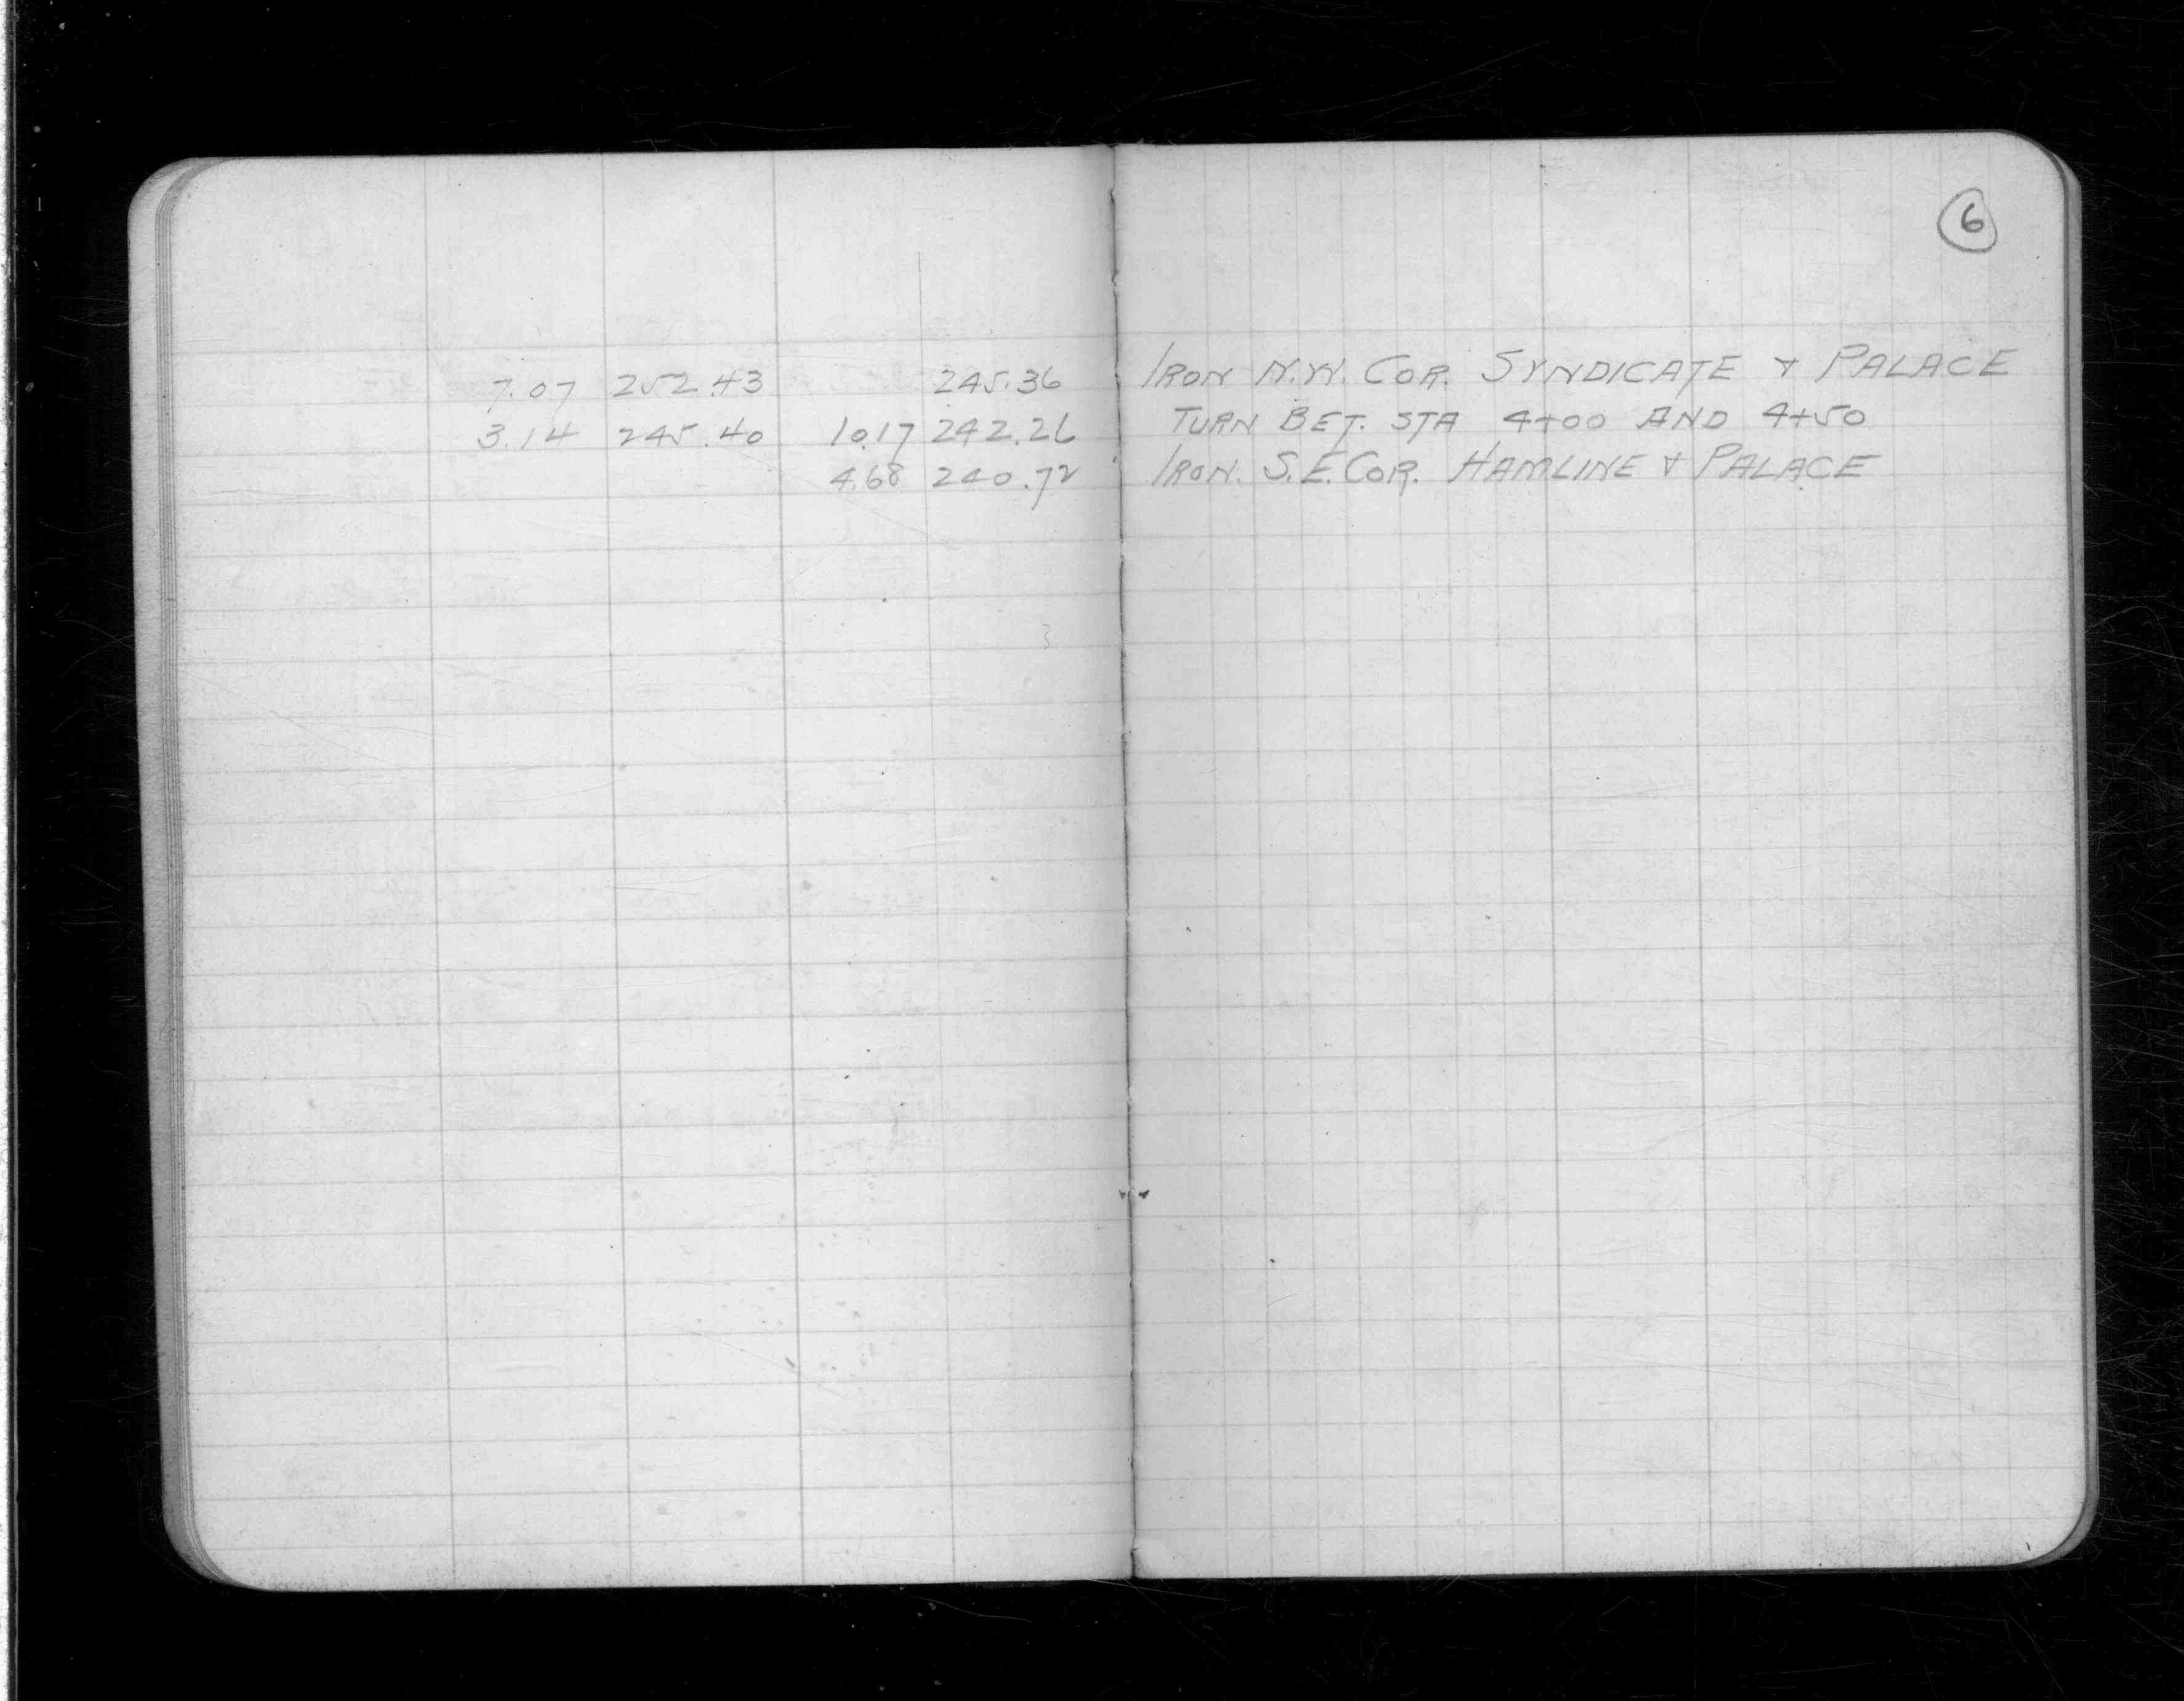 6
7.07 252.43 245.36 IRON N.W. COR. SYNDICATE & PALACE
3.14 245.40 10.17 242.26 TURN BET. STA 4+00 AND 4+50
4.68 240.72 IRON. S.E. COR. HAMLINE & PALACE
3